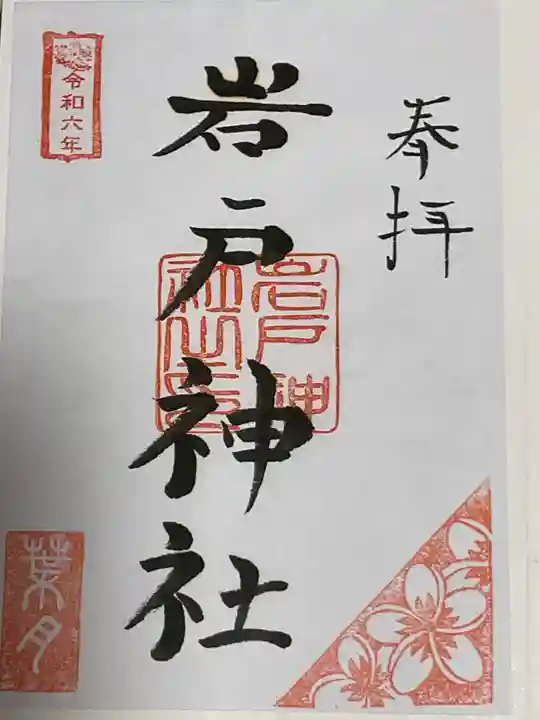 奉拝
岩戸神社
岩戸神社之印
令和六年
葉月